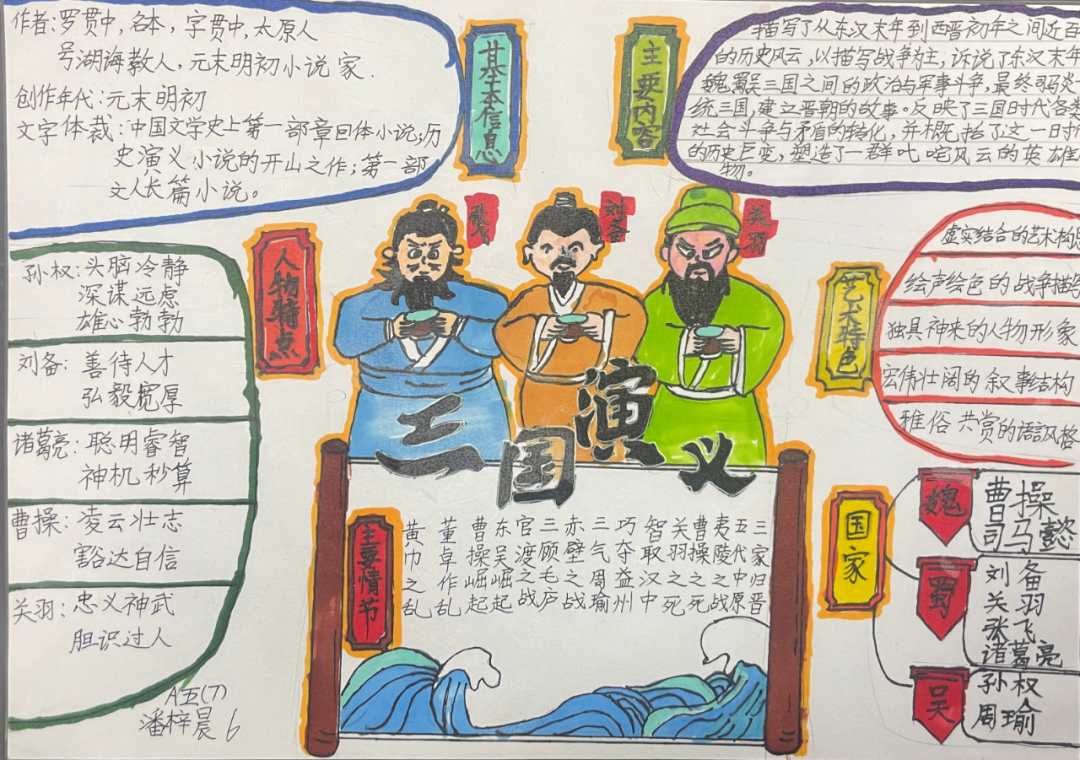 作者:罗贯中,名本,字贯中,太原人
号湖海散人,元末明初小说家.
创作年代:元末明初
文字体裁:中国文学史上第一部章回体小说;历
史演义小说的开山之作;第一部
文人长篇小说。
基本信息
主要内容
描写了从东汉末年到西晋初年之间近百
的历史风云,以描写战争为主,诉说了东汉末年
魏蜀吴三国之间的政治与军事斗争,最终司马炎
统三国,建立晋朝的故事。反映了三国时代各类
社会斗争与矛盾的转化,并概括了这一日时代
的历史巨变,塑造了一群叱咤风云的英雄
物。
人物特点
孙权:头脑冷静
深谋远虑
雄心勃勃
刘备:善待人才
弘毅宽厚
诸葛亮:聪明睿智
神机秒算
曹操:凌云壮志
豁达自信
关羽:忠义神武
胆识过人
A五(7)
潘梓晨 6
张飞
刘备
关羽
三国演义
艺术特色
虚实结合的艺术构思
绘声绘色的战争描写
独具神来的人物形象
宏伟壮阔的叙事结构
雅俗共赏的语言风格
主要情节
黄巾之乱
董卓作乱
曹操崛起
东吴崛起
官渡之战
三顾毛庐
赤壁之战
三气周瑜
巧夺益州
智取汉中
关羽之死
曹操之死
夷陵之战
五代中原
三家归晋
国家
魏
曹操
司马懿
蜀
刘备
关羽
张飞
诸葛亮
吴
孙权
周瑜